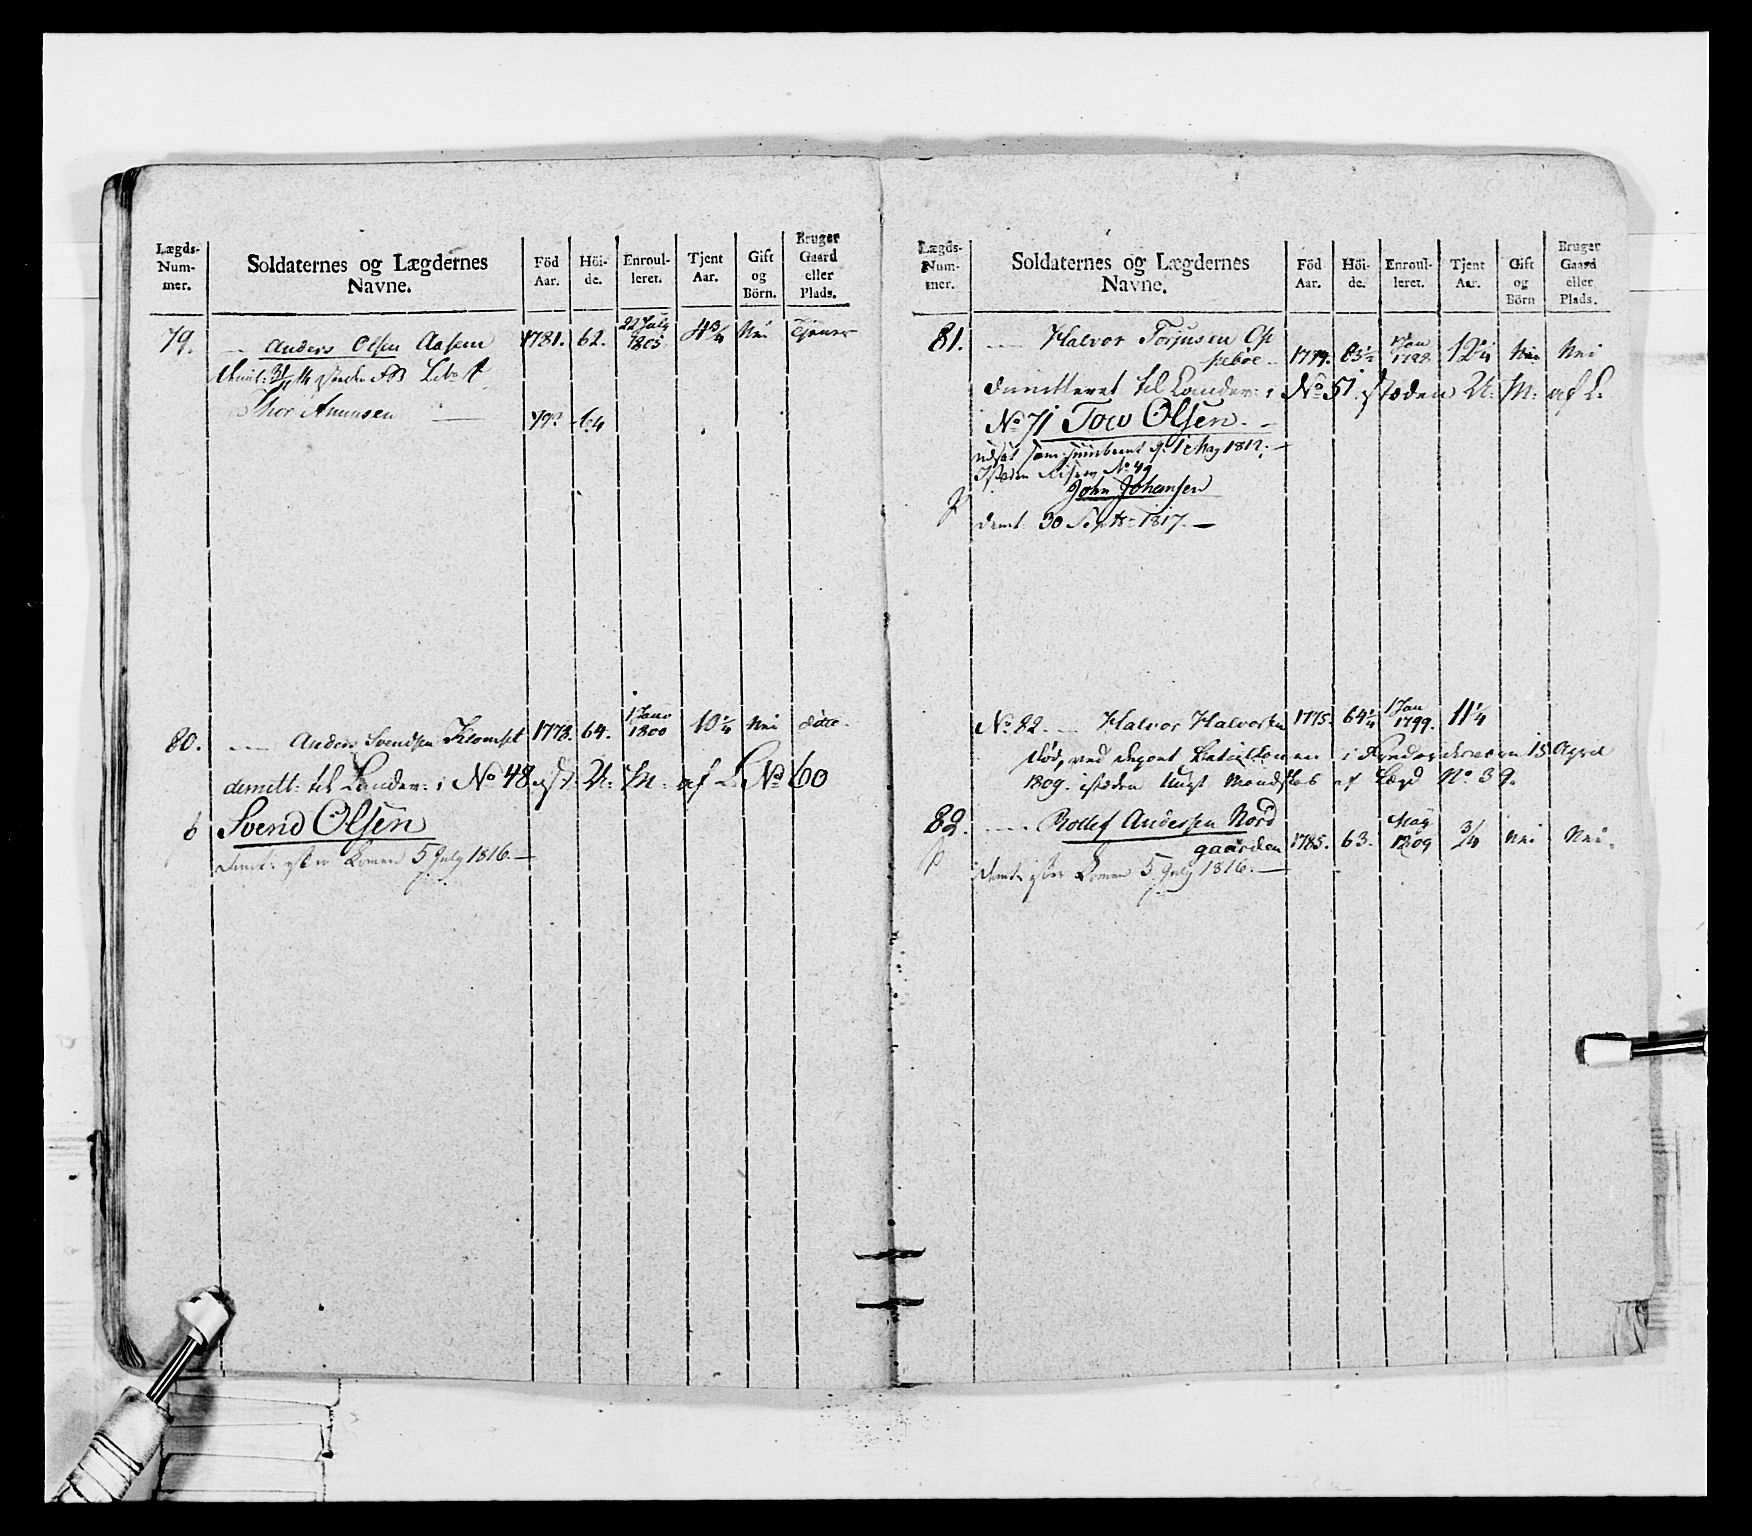 Lægds-
Num-
mer.
Soldaternes og Lægdernes
Navne.
Föd
Aar.
Höi-
de.
Enroul-
leret.
Tjent
Aar.
Gift
og
Börn.
Bruger
Gaard
eller
Plads.
79. Anders Olsen Aasen 1781. 62. 22 July 1805 4 3/4 Nei Tjener
Thor Amunsen 64
80. Anders Svendsen 1778. 64. 1 Janv 1800 10 1/4 Nei dito.
demitt: til Landev: i No 48 ist: U: M: af L. No 60
Svend Olsen
Demt: 5 July 1816.
Lægds-
Num-
mer.
Soldaternes og Lægdernes
Navne.
Föd
Aar.
Höi-
de.
Enroul-
leret.
Tjent
Aar.
Gift
og
Börn
Bruger
Gaard
eller
Plads.
81. Halvor Torjusen Op
seböe 1779. 63 1/2 1 Jan 1798 12 1/4 Nei Nei
Dimitteret til Landev: i No 51. isteden U: M: af L.
No 71 Tow Olsen
1 May 1812.
No 49
John Johansen
demt: 30 Septbr 1817.
No 82. Halvor Halvorsen 1775. 64 1/4 1 Jan 1799. 11 1/4
död, ved Depot Bataillonen i 15 April
1809. isteden Ungt Mandskab af Lægd No 39.
82. Rollef Andersen Nord
gaarden 1785. 63. May 1809 3/4 Nei Nei.
Demt: 5 July 1816.